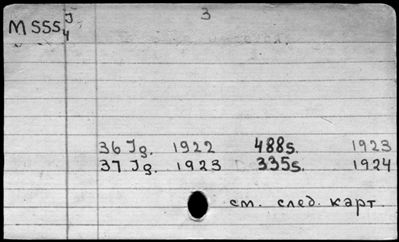 M 555 J/4
3
36 Jg. 1922 488s. 1923
37 Jg. 1923 335s. 1924
см. след. карт.